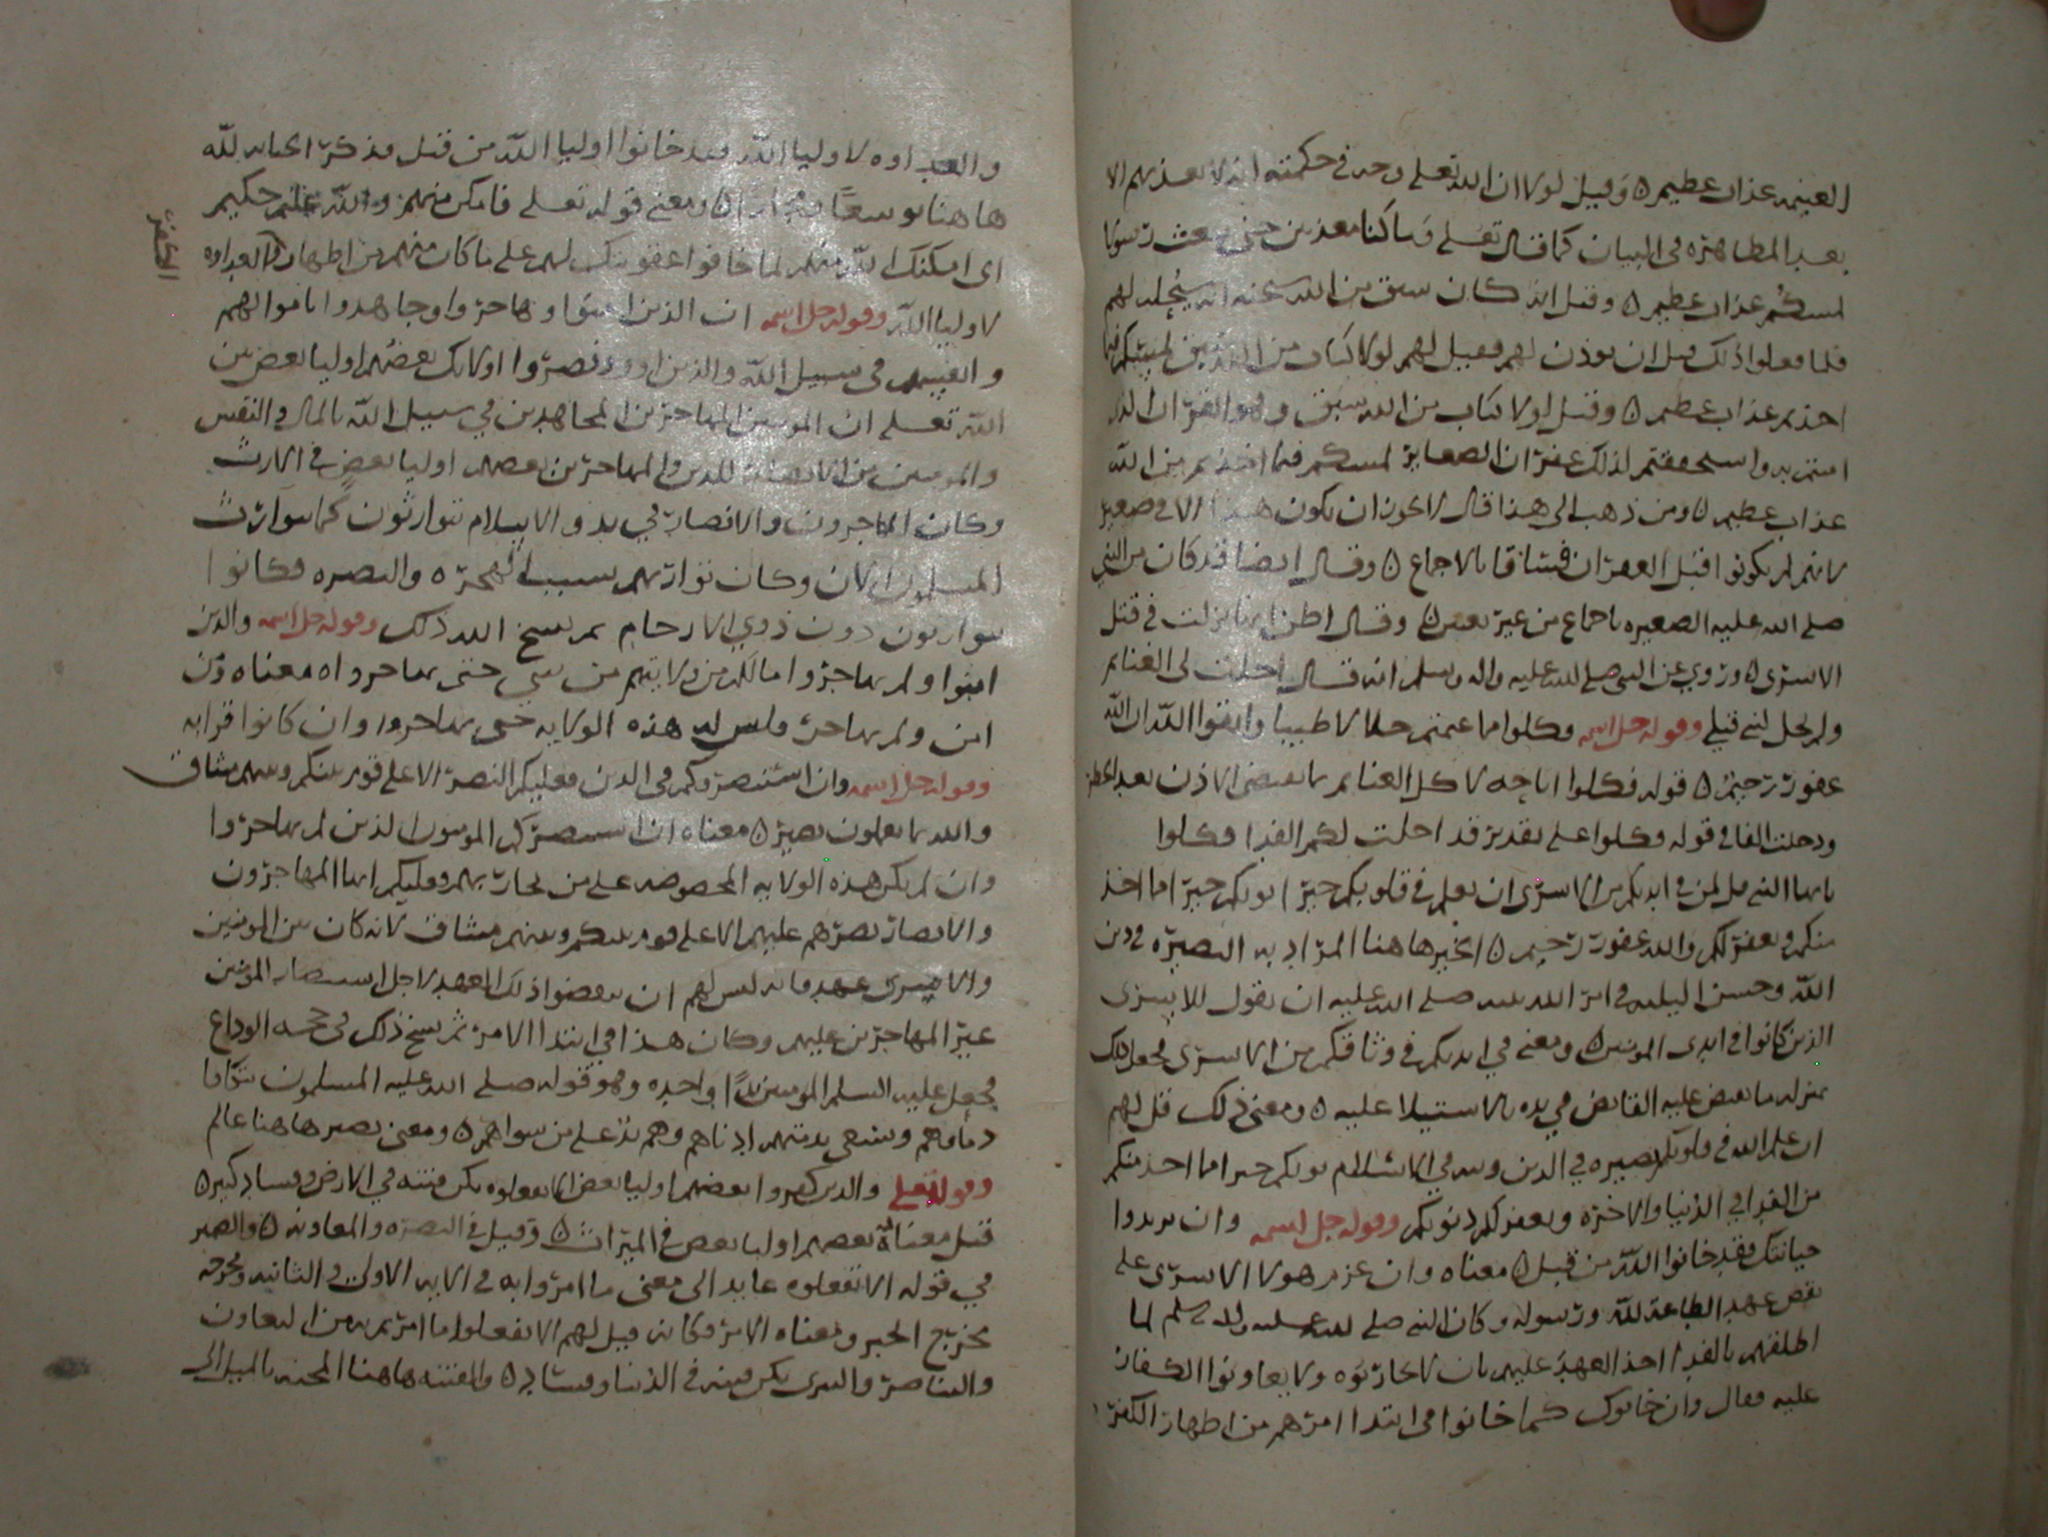 الغنيمه عذاب عظيم ٥ وقيل لولا ان الله تعلى وجد في حكمته انه لا يعذبهم الا
بعد المظاهره في البيان كما قال تعلى وما كنا معذبين حتى نبعث رسولا
لمسكم عذاب عظيم ٥ وقيل انه كان سبق من الله عنه انه سيحله لهم
فلما فعلوا ذلك قبل ان يوذن لهم فقيل لهم لولا كتاب من الله سبق لمسكم فيما
اخذتم عذاب عظيم ٥ وقيل لولا كتاب من الله سبق وهو القران الذي
امنتم به واستحققتم لذلك غفران الصغاير لمسكم فيما اخذتم من الله
عذاب عظيم ٥ ومن ذهب الى هذا قال لا يجوز ان يكون هذا الا في صغير
لانهم لم يكونوا قبل الغفران فساقا بالاجماع ٥ وقال ايضا قد كان من النبي
صلى الله عليه الصغيره باجماع من غير تعين ٥ وقال اظن انها نزلت في قتل
الاسرى ٥ وروي عن النبي صلى الله عليه واله وسلم انه قال احلت لي الغنايم
ولم تحل لنبي قبلي وقوله جل اسمه فكلوا مما غنمتم حلالا طيبا واتقوا الله ان الله
غفور رحيم ٥ قوله فكلوا اباحه لاكل الغنايم بما يقتضي الاذن بعد الحظر
ودخلت الفا في قوله فكلوا على تقدير قد احلت لكم الفدا فكلوا
يايها النبي قل لمن في ايديكم من الاسرى ان يعلم في قلوبكم خيرا يوتكم خيرا مما اخذ
منكم ويغفر لكم والله غفور رحيم ٥ الخير هاهنا المراد به البصيره في دين
الله وحسن النيه في امر الله نبيه صلى الله عليه ان يقول للاسرى
الذين كانوا في ايدي المومنين ٥ ومعنى في ايديكم في وثاقكم من الاسرى فجعل ذلك
بمنزله ما يقبض عليه القابض في يده بالاستيلا عليه ٥ ومعنى ذلك قل لهم
ان علم الله في قلوبكم بصيره في الدين ونيه في الاسلام يوتكم خيرا مما اخذ منكم
من الفدا في الدنيا والاخره ويغفر لكم ذنوبكم وقوله جل اسمه وان يريدوا
خيانتك فقد خانوا الله من قبل ٥ معناه وان عزم هولا الاسرى على
نقض عهد الطاعة لله ورسوله وكان النبي صلى الله عليه واله وسلم لما
اطلقهم بالفدا اخذ العهد عليهم بان لا يحاربوه ولا يعاونوا الكفار
عليه فقال وان خانوك كما خانوا في ابتدا امرهم من اظهار الكفر
والعداوه لاوليا الله فقد خانوا اوليا الله من قبل فذكر الخيانه لله
هاهنا توسعا ومجازا ٥ ومعنى قوله تعلى فامكن منهم والله عليم حكيم
اي امكنك الله منهم لما خافوا عقوبتك لهم على ما كان منهم من اظهار والعداوه
الكفر
لاوليا الله وقوله جل اسمه ان الذين امنوا وهاجروا وجاهدوا باموالهم
وانفسهم في سبيل الله والذين اووا ونصروا اولئك بعضهم اوليا بعض بين
الله تعلى ان المومنين المهاجرين المجاهدين في سبيل الله بالمال والنفس
والمومنين من الانصار للدين والمهاجرين بعضهم اوليا بعض في الارث
وكان المهاجرون والانصار في بدو الاسلام يتوارثون كما يتوارث
المسلمون الان وكان توارثهم بسبب الهجره والنصره فكانوا
يتوارثون دون ذوي الارحام ثم نسخ الله ذلك وقوله جل اسمه والذين
امنوا ولم يهاجروا مالكم من ولايتهم من شي حتى يهاجروا ٥ معناه ومن
امن ولم يهاجر فليس له هذه الولايه حتى يهاجروا وان كانوا قرابه
وقوله جل اسمه وان استنصروكم في الدين فعليكم النصر الا على قوم بينكم وبينهم ميثاق
والله بما تعملون بصير ٥ معناه ان استنصركم المومنون الذين لم يهاجروا
وان لم يكن هذه الولايه المخصوصه على من يحاربهم فعليكم ايها المهاجرون
والانصار نصرهم عليهم الا على قوم بينكم وبينهم ميثاق لانه كان بين المومنين
والاسرى عهد فانه ليس لهم ان ينقضوا ذلك العهد لاجل استنصار المومنين
غير المهاجرين عليهم وكان هذا في ابتدا الامر ثم نسخ ذلك في حجه الوداع
فجعل عليه السلم المومنين يدا واحده وهو قوله صلى الله عليه المسلمون تتكافا
دماوهم ويسعى بذمتهم ادناهم وهم يد على من سواهم ٥ ومعنى بصير هاهنا عالم
وقوله تعلى والذين كفروا بعضهم اوليا بعض الا تفعلوه تكن فتنه في الارض وفساد كبير ٥
قيل معناه بعضهم اوليا بعض في الميراث ٥ وقيل في النصره والمعاونه ٥ والضمير
في قوله الا تفعلوه عايد الى معنى ما امروا به في الايه الاولى والثانيه ومخرجه
مخرج الخبر ومعناه الامر فكانه قيل لهم الا تفعلوا ما امرتم به من التعاون
والتناصر والتبري تكن فتنه في الدنيا وفساد ٥ والفتنه هاهنا المحنه بالميل الى